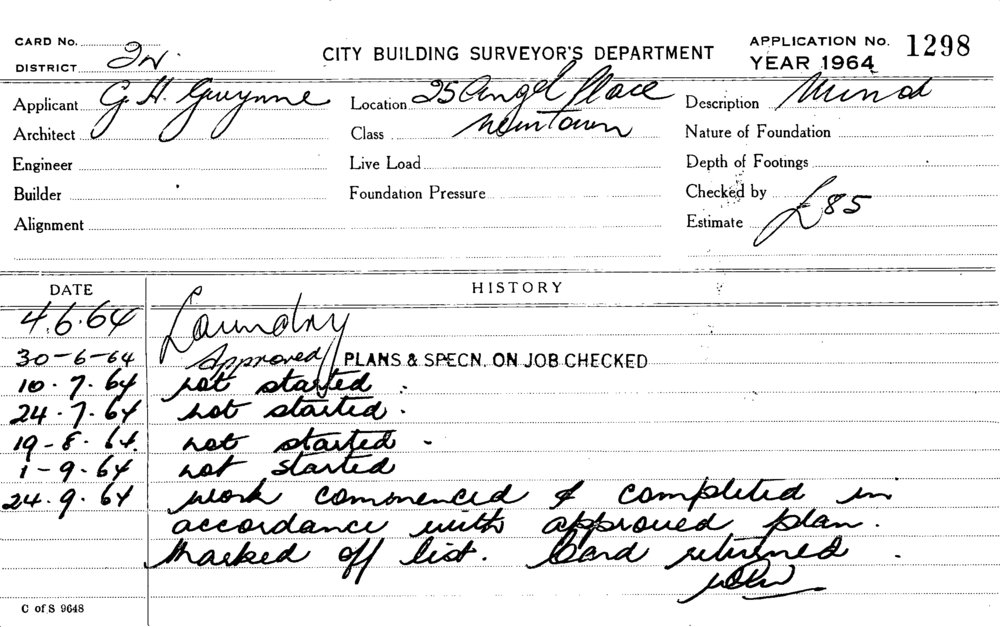 CARD No.
CITY BUILDING SURVEYOR'S DEPARTMENT
APPLICATION No. 1298
DISTRICT
YEAR 1964
Applicant G. H. Gwynne
Location 25 Angel Place
Description
Architect
Class Newtown
Nature of Foundation
Engineer
Live Load
Depth of Footings
Builder
Foundation Pressure
Checked by
Alignment
Estimate £85
DATE HISTORY
4.6.64 Laundry
30-6-64 Approved PLANS & SPECN. ON JOB CHECKED
10.7.64 not started.
24.7.64 not started.
19-8.64. not started -
1-9.64 not started
24.9.64 work commenced & completed in
accordance with approved plan.
Marked off list. Card returned.
C of S 9648